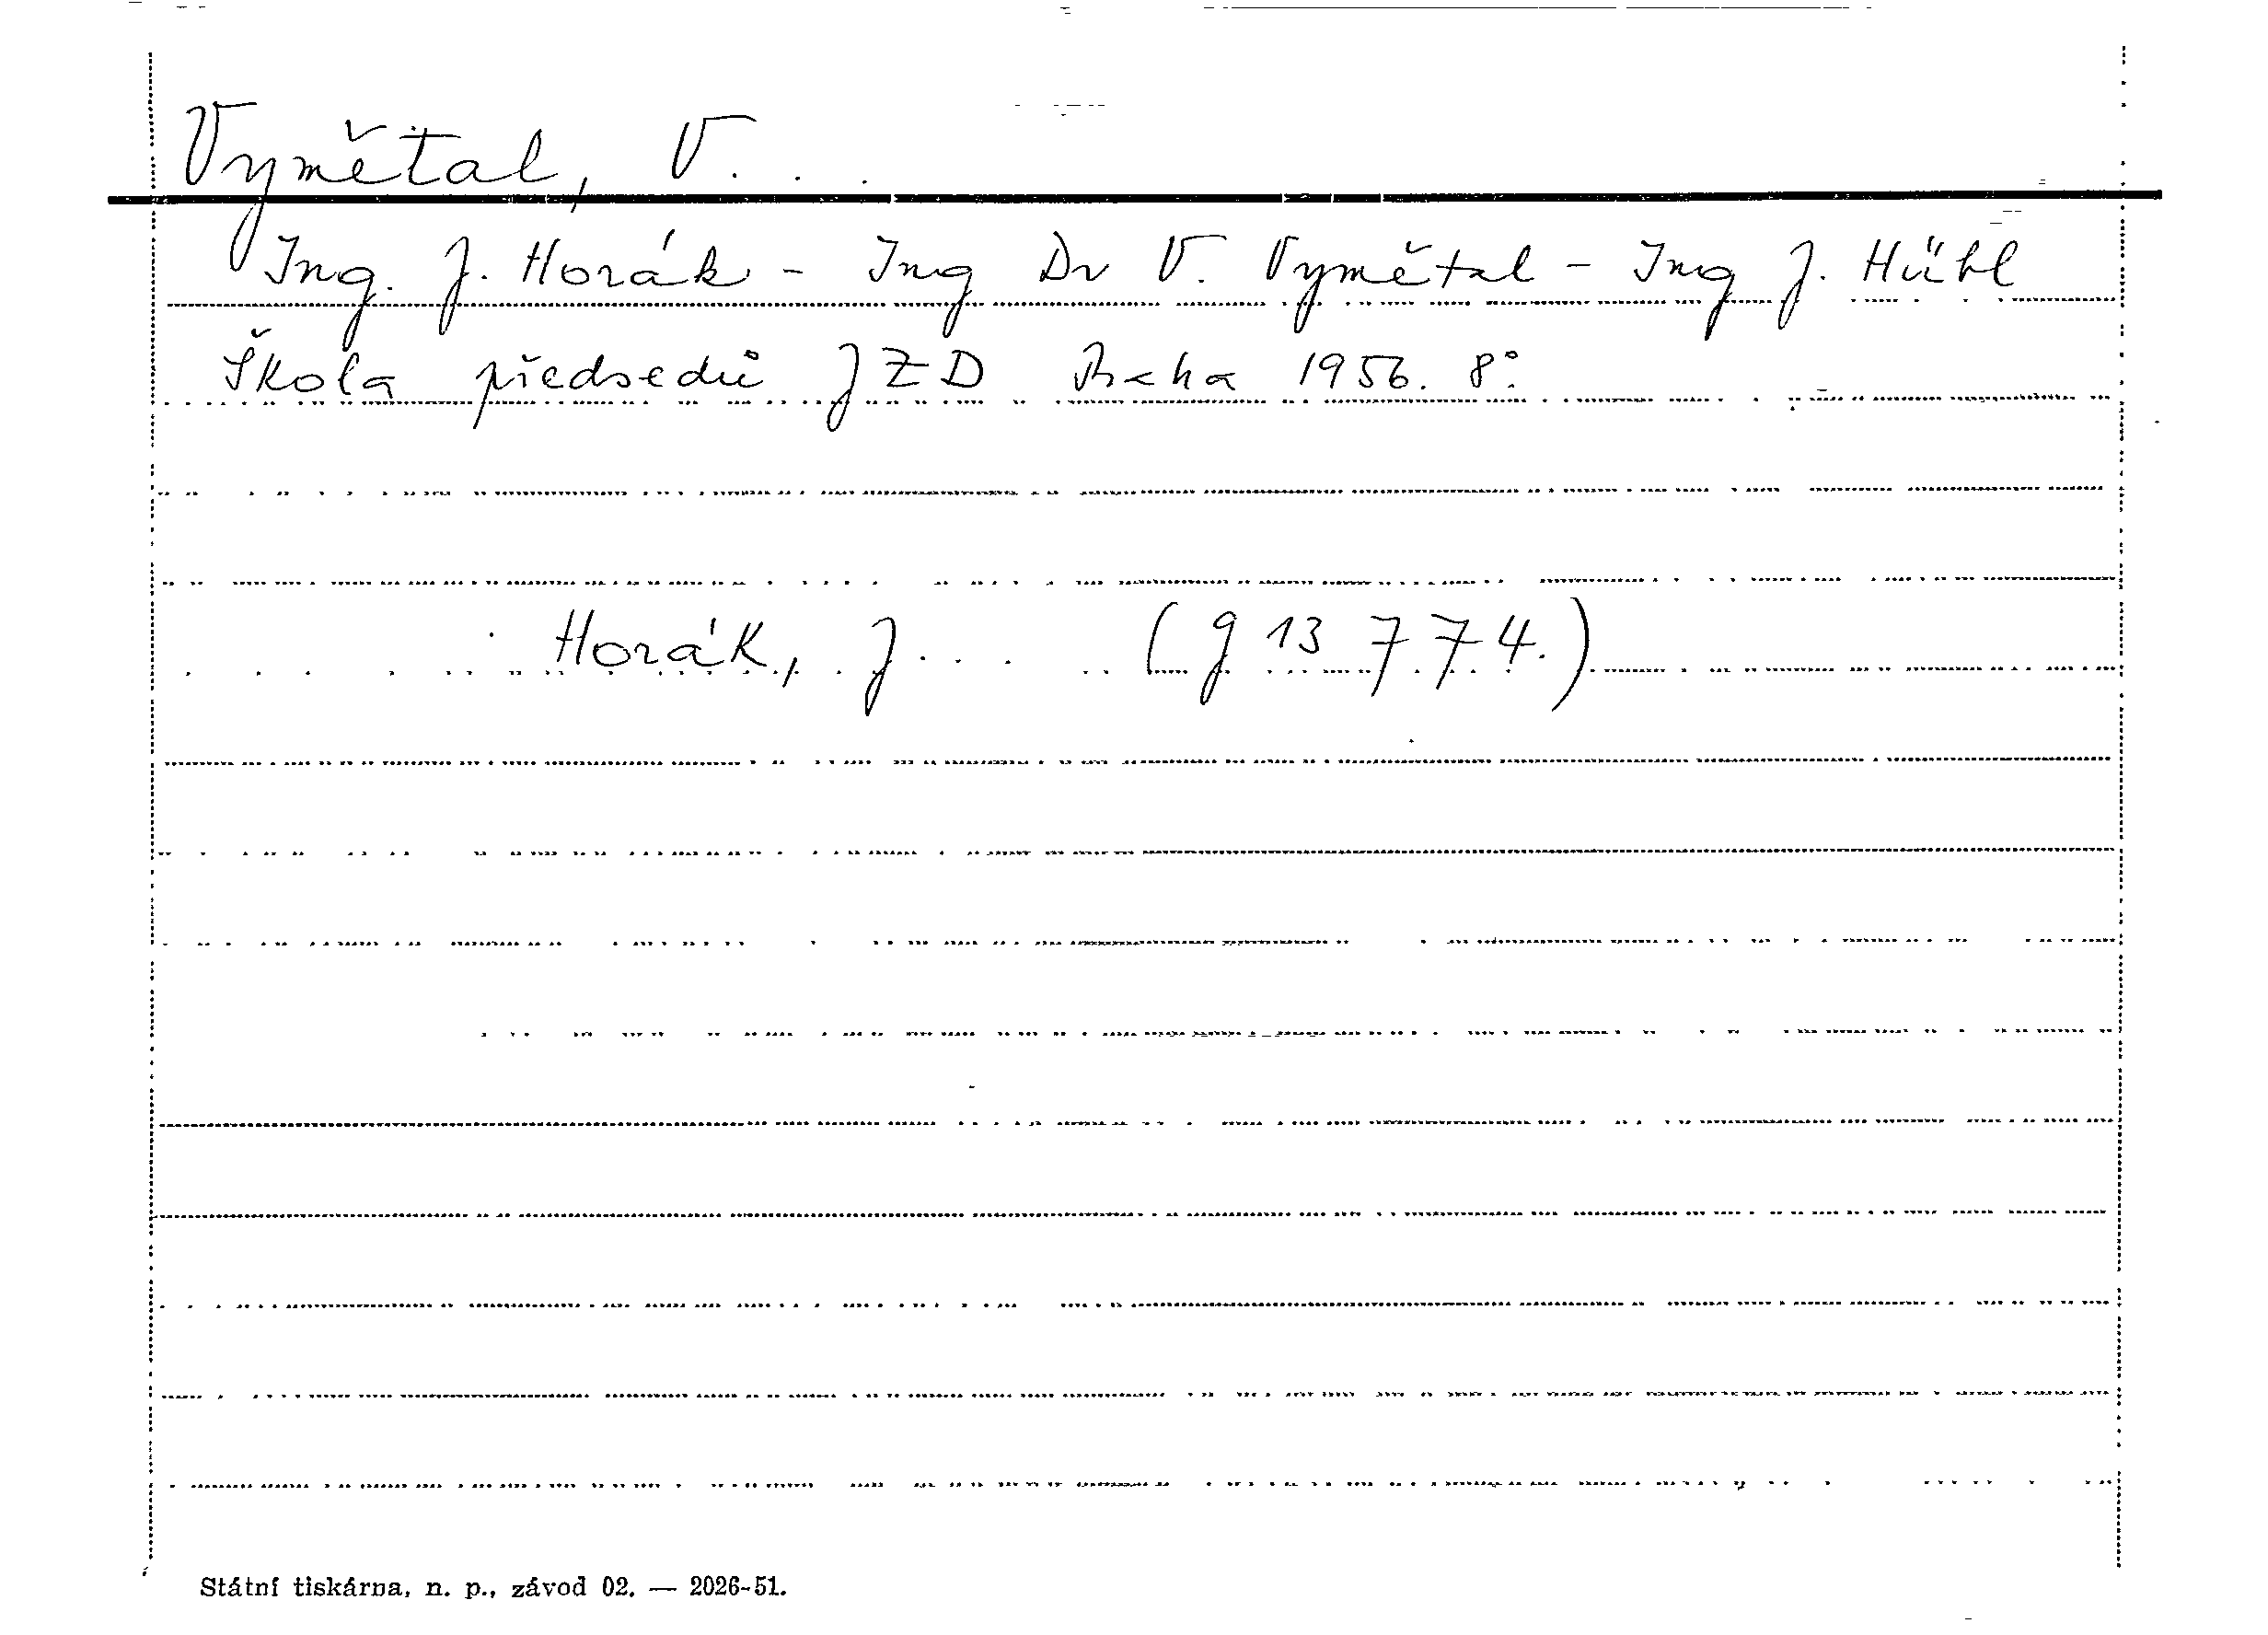 Vymětal, V. . .
Ing. J. Horák - Ing Dr V. Vymětal - Ing J. Hübl
Škola předsedů JZD Praha 1956. 8°.
Horák, J. . . (g 13 774.)
Státní tiskárna, n. p., závod 02. — 2026-51.